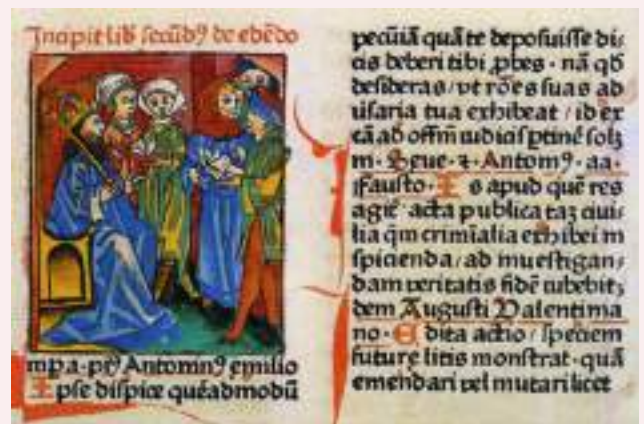 Incipit lib secūdꝰ de edēdo
mp. a. ptꝰ Antominꝰ emilio
Ipse dispice quēadmodū
pecūiā quā te deposuisse di
cis deberi tibi ꝓbes · nā qđ
desideras / vt rōes suas ad
usaria tua exhibeat / id ex
cā ad offm iudicis ptine solꝫ
m · Seue · ⁊ · Antomꝰ · aa ·
Fausto · I s apud quē res
agit acta publica taꝫ ciui
lia qm crimīalia exhibei m
spicienda / ad muestigan /
dam veritatis fidē iubebitꝫ
dem Augusti Valentima
no · E dita actio / speciem
future litis monstrat · quā
emendari vel mutari licet